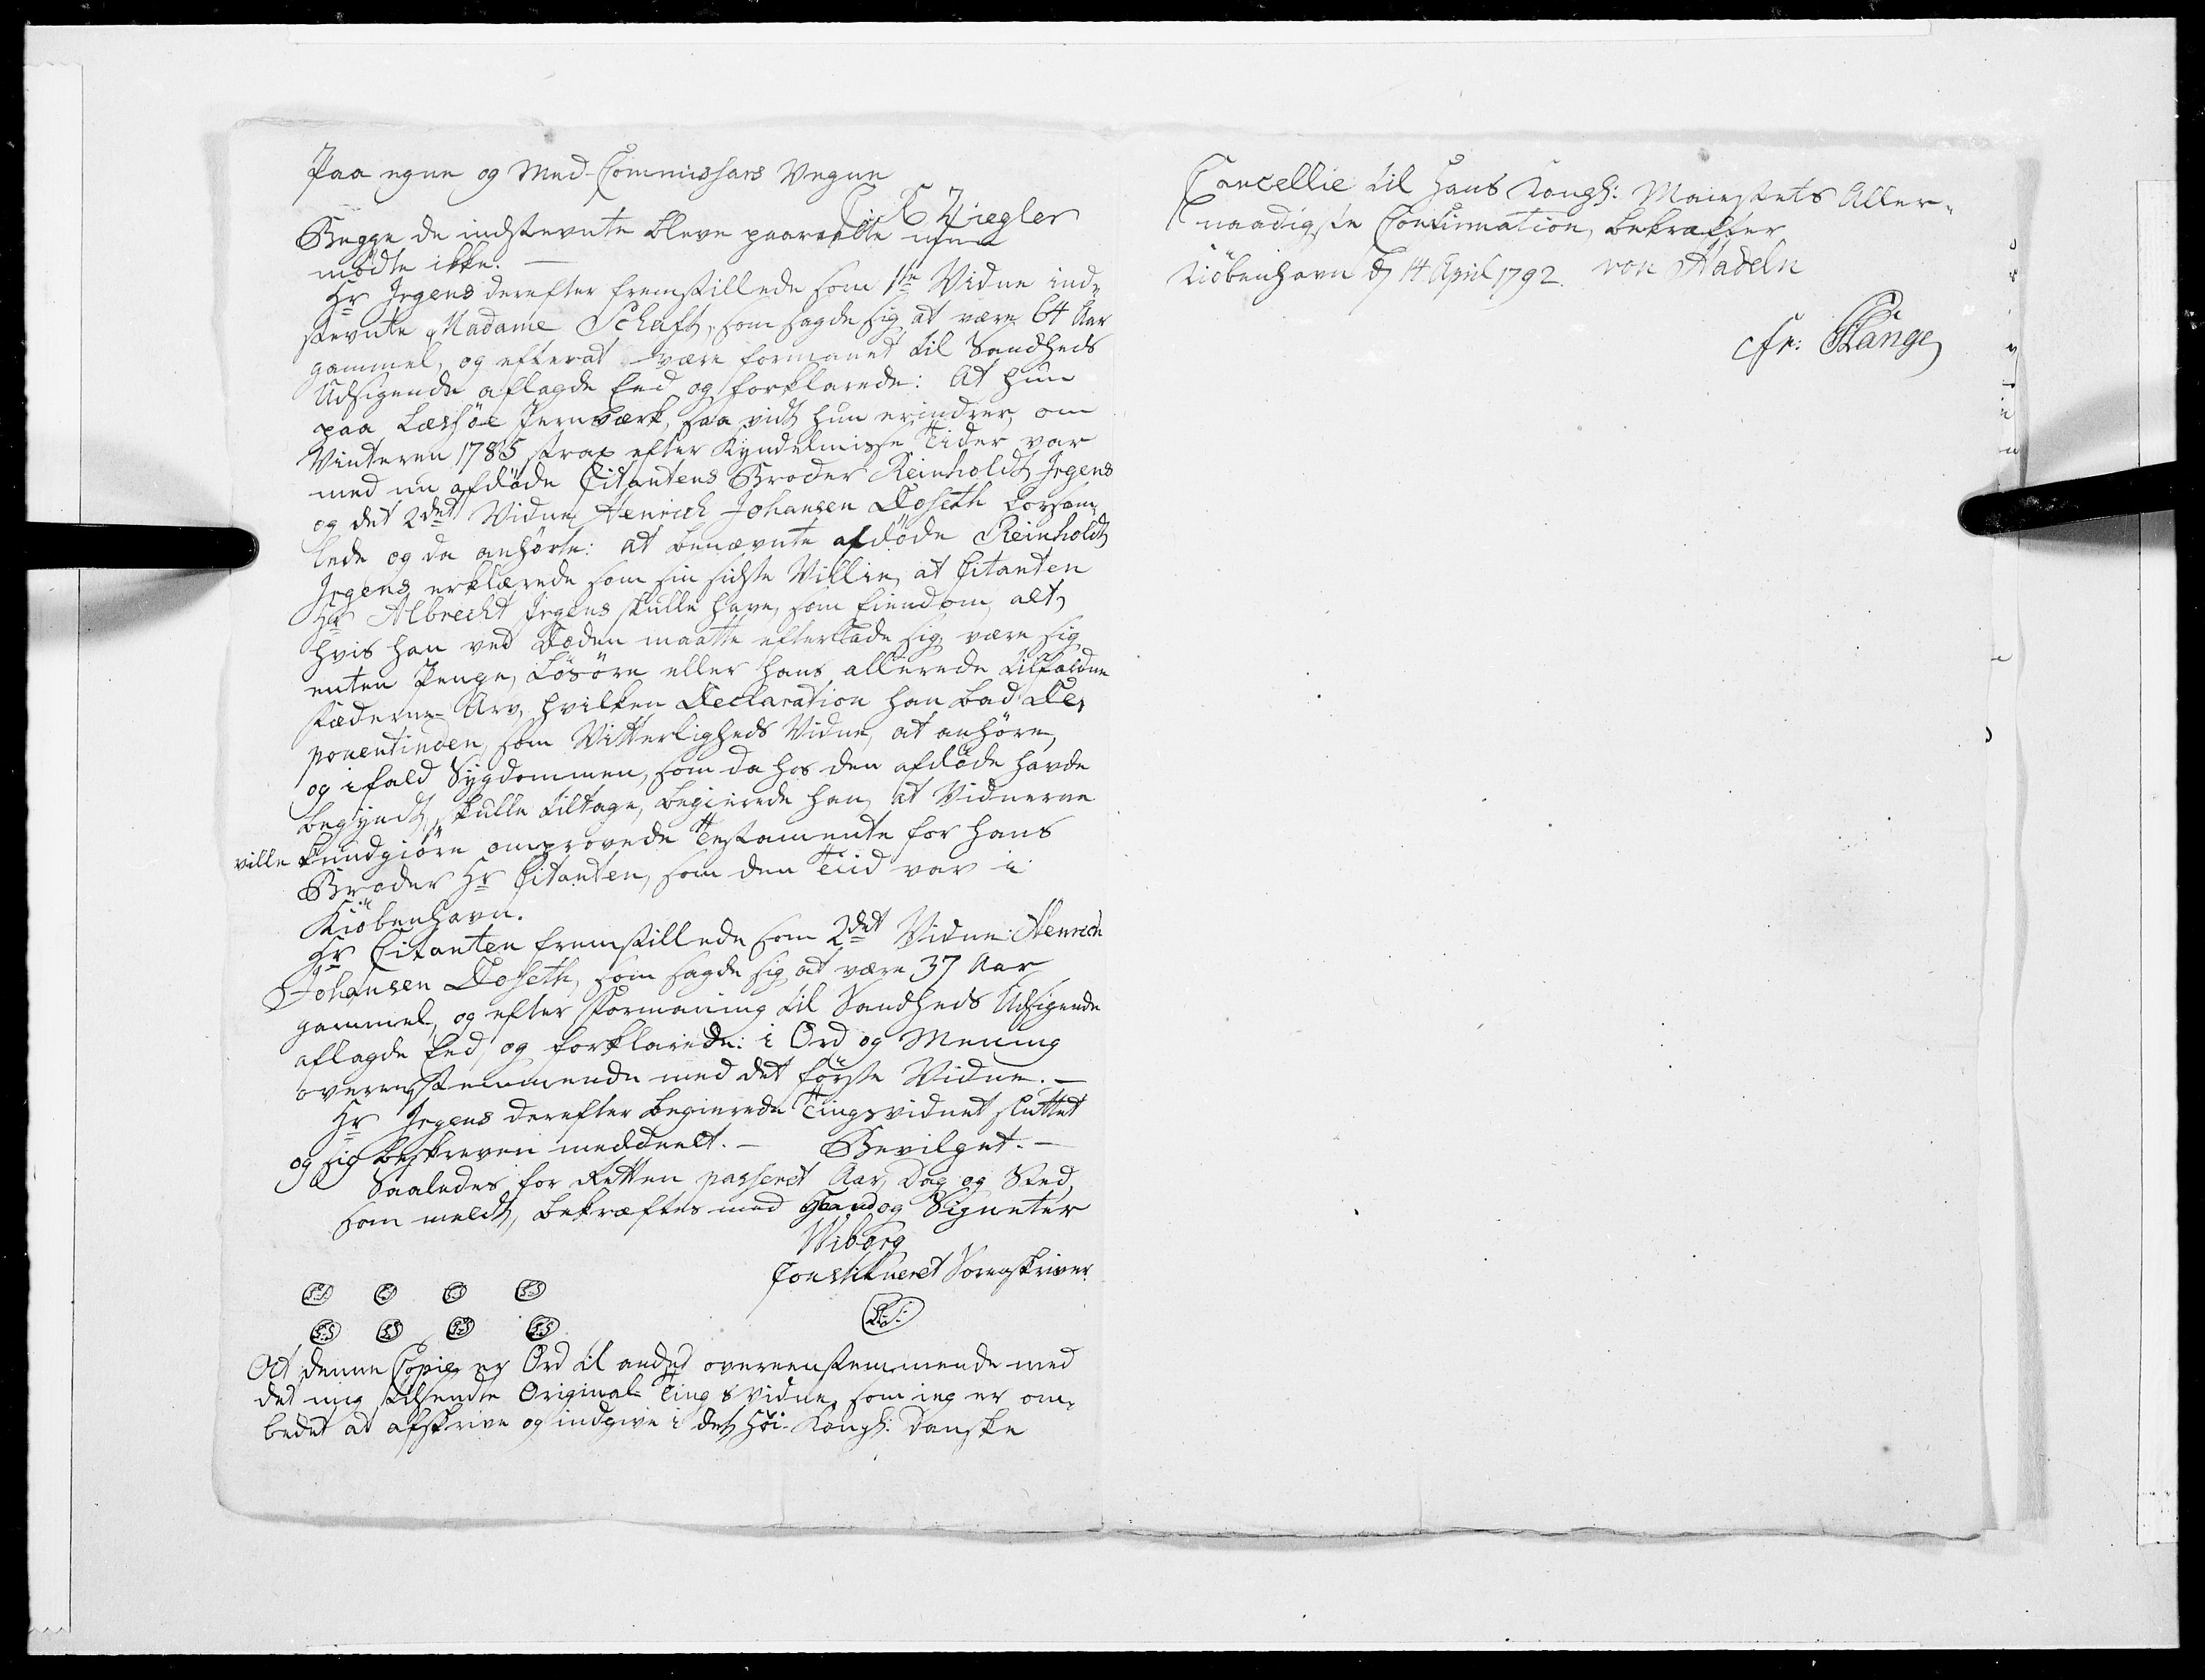 Paa egne og Med-Commissars Vegne
C: C Ziegler
Begge de indstevnte bleve paaraabte men
mødte ikke. —
Hr Irgens derefter fremstillede som 1te Vidne ind-
stevnte Madame Schaft, som sagde sig at være 64 Aar
gammel, og efterat være formanet til Sandheds
Udsigende aflagde Eed og forklarede: At hun
paa Lessøe Jernværk, saa vidt hun erindrer, om
Vinteren 1785 strax efter Kyndelmisse Tider var
med nu afdøde Citantens Broder Reinholdt Irgens
og det 2det Vidne Henrich Johansen Doseth forsam-
lede og da anhørte: at benævnte afdøde Reinholdt
Irgens erklærede som sin sidste Villie, at Citanten
Hr Albrecht Irgens skulle have, som Eiendom, alt,
hvis han ved Døden maatte efterlade sig, være sig
enten Penge, Løsøre eller hans allerede tilfaldne
Fæderne-Arv, hvilken Declaration han bad De-
ponentinden, som Vitterligheds Vidne, at anhøre,
og ifald Sygdommen, som da hos den afdøde havde
begyndt, skulle tiltage, begierede han, at Vidnerne
ville kundgiøre omprovede Testamente for hans
Broder Hr Citanten, som den Tiid var i
Kiöbenhavn.
Hr Citanten fremstillede som 2det Vidne: Henrich
Johansen Doseth, som sagde sig at være 37 Aar
gammel, og efter Formaning til Sandheds Udsigende
aflagde Eed, og forklarede: i Ord og Mening
overensstemmende med det første Vidne. —
Hr Irgens derefter begierede Tingsvidnet sluttet
og sig beskreven meddeelt. — Bevilget. —
Saaledes for Retten passeret Aar, Dag og Sted,
som meldt, bekræftes med Haand og Signeter
Wiborg
Constitueret Sorenskriver
L.S. L.S. L.S. L.S.
L:S:
L.S. L.S. L.S. L.S.
At denne Copie er Ord til andet overeenstemmende med
det mig tilsendte Original Tingsvidne, som ieg er om-
bedet at afskrive og indgive i det Høi-Kongl: Danske
Cancellie til Hans Kongl: Maiestets Aller-
naadigste Confirmation, bekræfter
Kiöbenhavn d 14 April 1792. von Hadeln
Fr: Stange